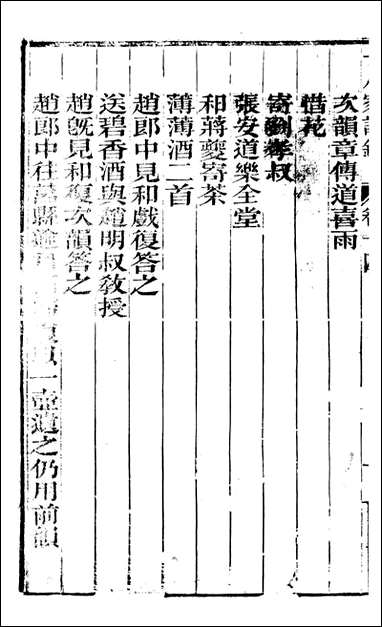 八家詩鈔 卷十四
次韻章傳道喜雨
惜花
寄劉孝叔
張安道樂全堂
和蔣夔寄茶
薄薄酒二首
趙郎中見和戲復答之
送碧香酒與趙明叔敎授
趙旣見和復次韻答之
趙郎中往莒縣逾 一壺遺之仍用前韻